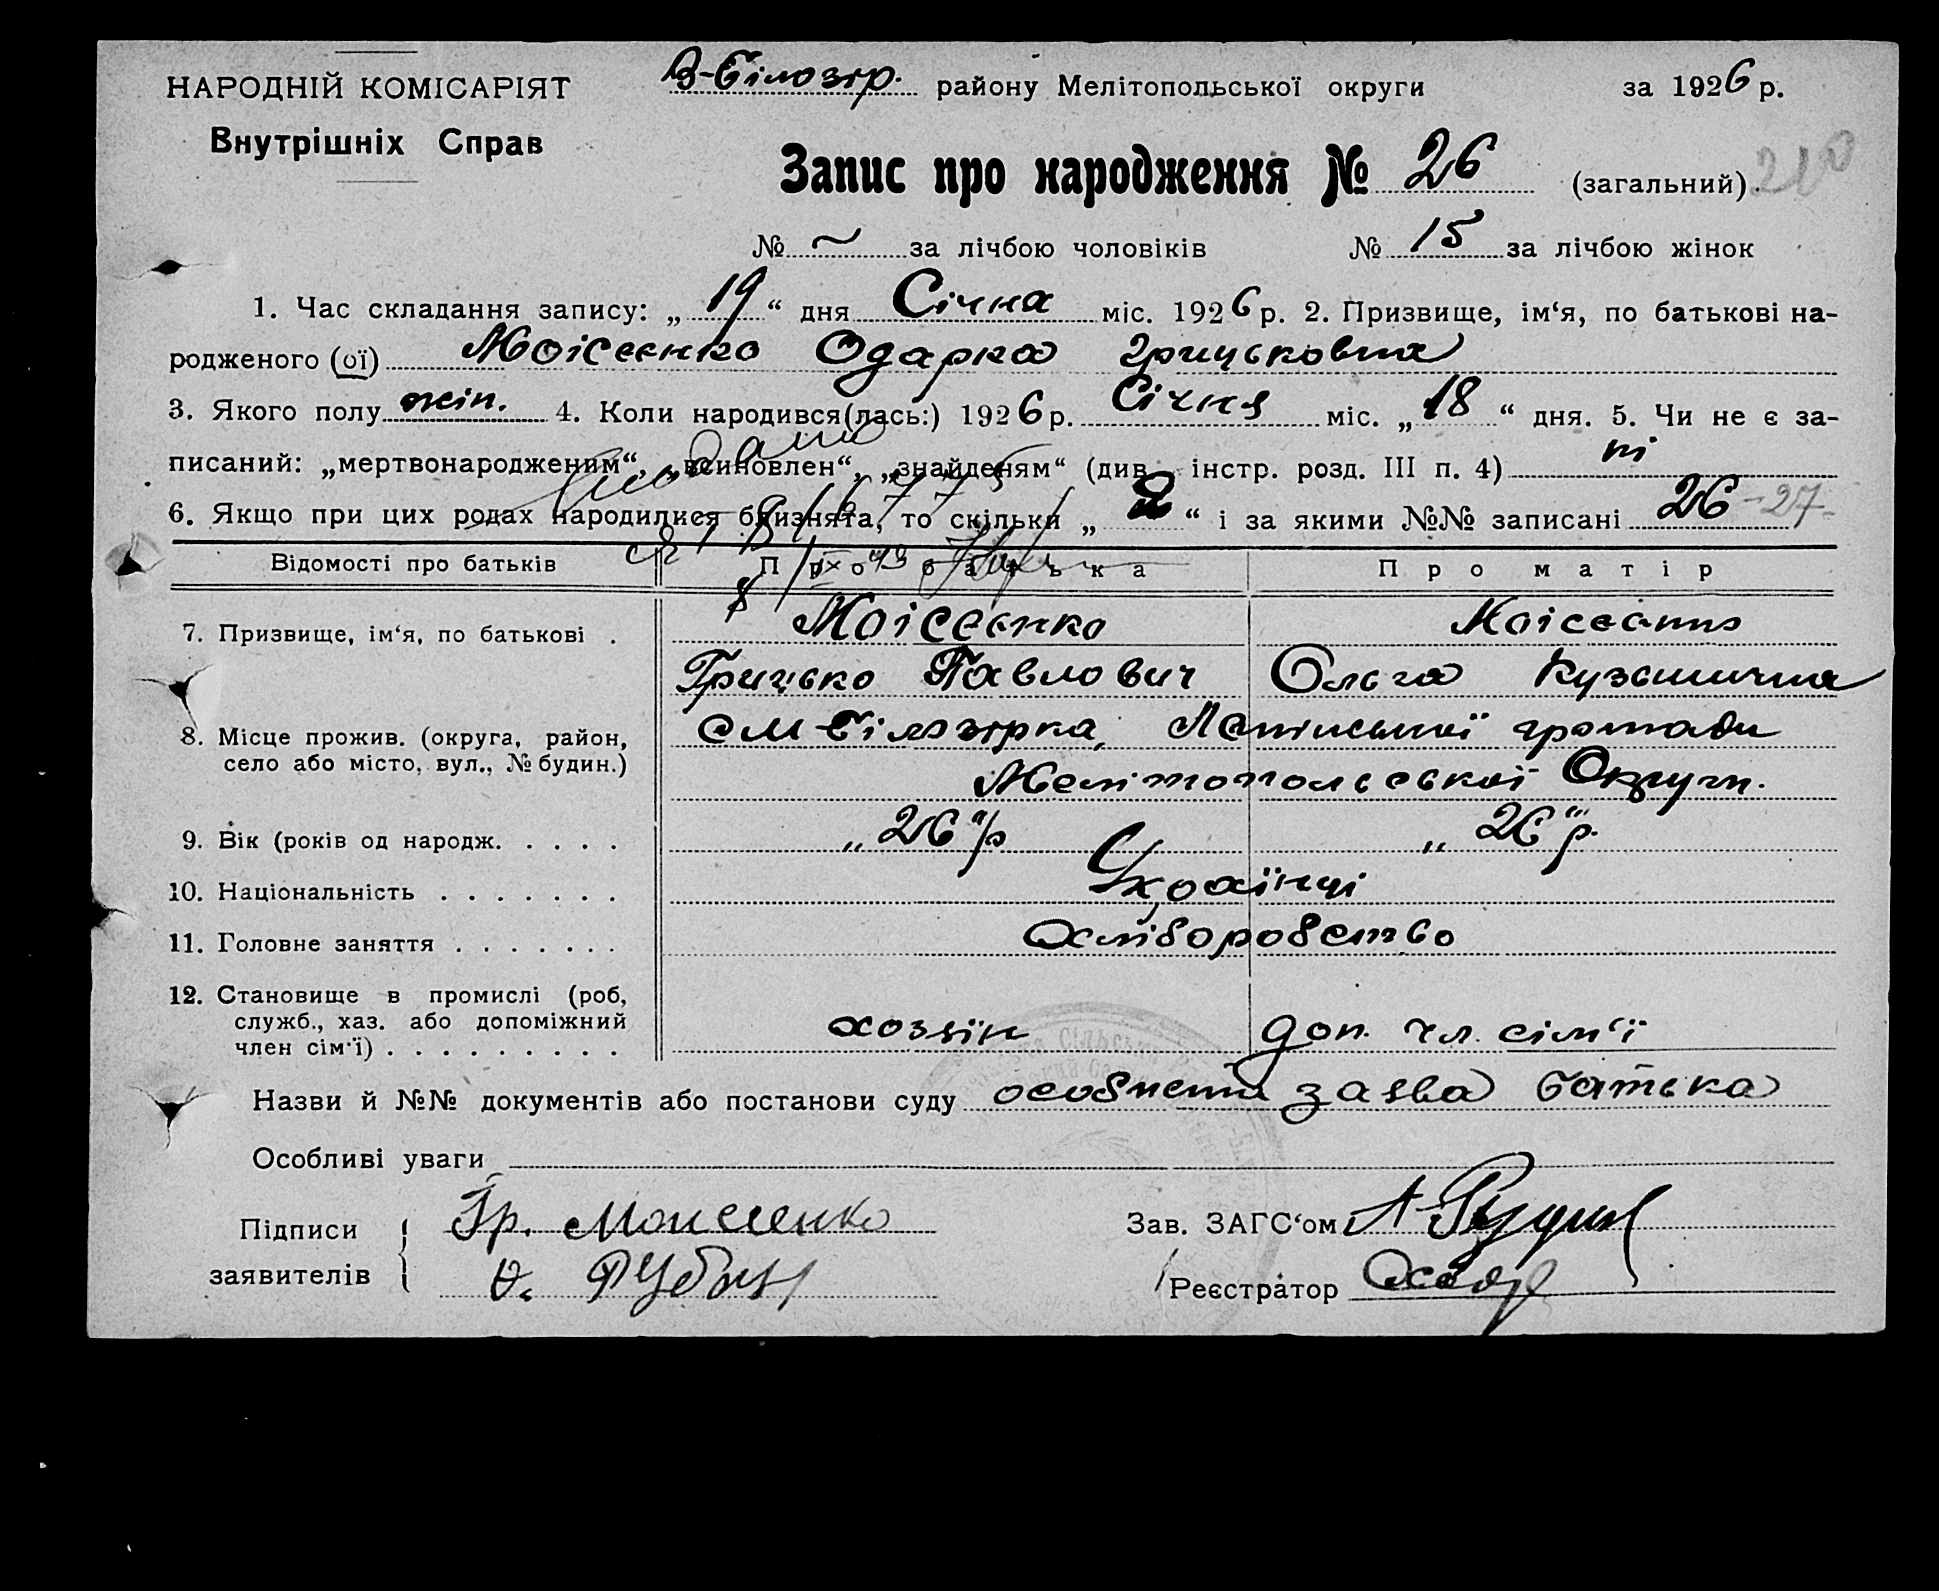 НАРОДНІЙ КОМІСАРІЯТ
Внутрішніх Справ
В-Білозір. району Мелітопольської округи за 1926 р.
Запис про народження № 26 (загальний) 210
№ — за лічбою чоловіків № 15 за лічбою жінок
1. Час складання запису: „ 19 “ дня Січня міс. 1926 р. 2. Призвище, ім‘я, по батькові на-
родженого (ої) Моісеєнко Одарка Грицьковна
3. Якого полу жін. 4. Коли народився(лась:) 1926 р. Січня міс. „ 18 “ дня. 5. Чи не є за-
писаний: „мертвонародженим“, „всиновлен“, „знайденям“ (див. інстр. розд. III п. 4) ні
6. Якщо при цих родах народилися близнята, то скільки „ 2 “ і за якими №№ записані 26-27
Відомості про батьків Про батька Про матір
7. Призвище, ім‘я, по батькові . Моісеєнко Моісеєнко
Грицько Павлович Ольга Кузьмична
8. Місце прожив. (округа, район,
село або місто, вул., № будин.)
См-Білозірка, громади
Мелітопольської Округи.
9. Вік (років од народж. . . . . „ 26 “ р „ 26 “ р.
10. Національність . . . . . . . Українці
11. Головне заняття . . . . . . . Хліборобство
12. Становище в промислі (роб,
служб., хаз. або допоміжний
член сім‘ї) . . . . . . . . . хозяїн доп. чл. сім‘ї
Назви й №№ документів або постанови суду особиста заява батька
Особливі уваги
Підписи Гр. Моисеенко Зав. ЗАГС‘ом
заявителів Реєстратор